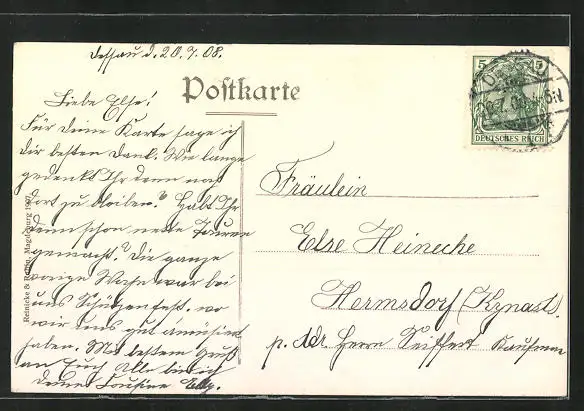 Dessau d. 20.7.08.
Postkarte
Liebe Else!
Für deine Karte sage ich
dir besten Dank. Wie lange
gedenkt Ihr denn noch
dort zu bleiben? Habt Ihr
denn schon nette Touren
gemacht? Die ganze
vorige Woche war bei
uns Schützenfest, wo
wir uns gut amüsiert
haben. Mit bestem Gruß
an Euch Alle bin ich
deine Cousine Elly.
5 5
DEUTSCHES REICH
Fräulein
Else Heinecke
Hermsdorf (Kynast).
p. adr. Herrn Seiffert Kaufmann
Reinicke & Magdeburg